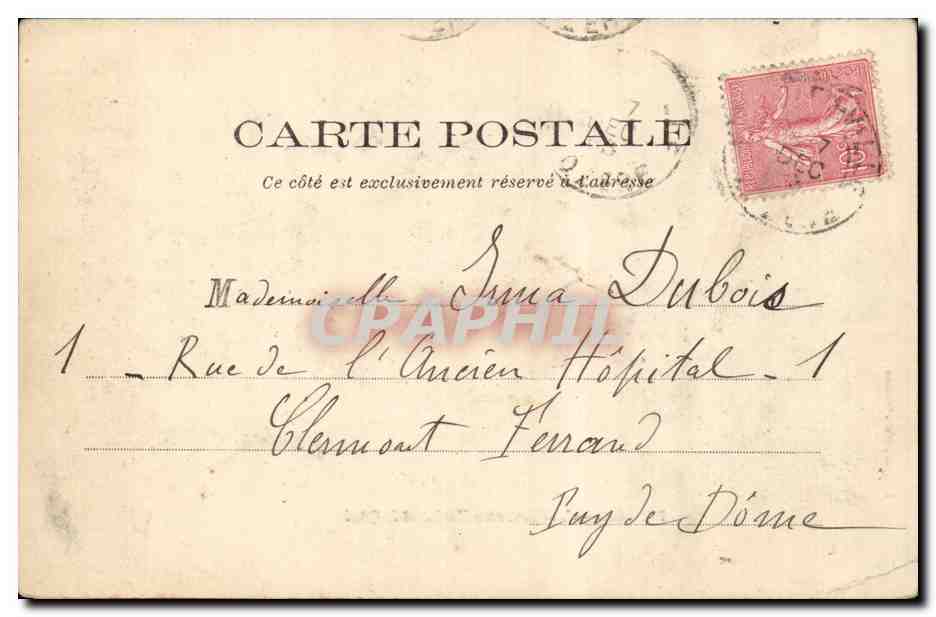 CARTE POSTALE
Ce côté est exclusivement réservé à l'adresse
Mademoiselle Irma Dubois
CPAPHIL
1 - Rue de l'Ancien Hôpital - 1
Clermont Ferrand
Puy de Dôme
10